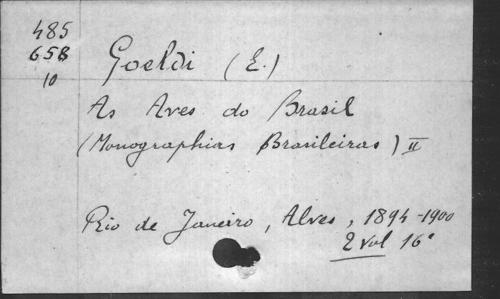 485
658
10
Goeldi (E.)
As Aves do Brasil
(Monographias Brasileiras) II
Rio de Janeiro, Alves, 1894-1900
2 vol 16°